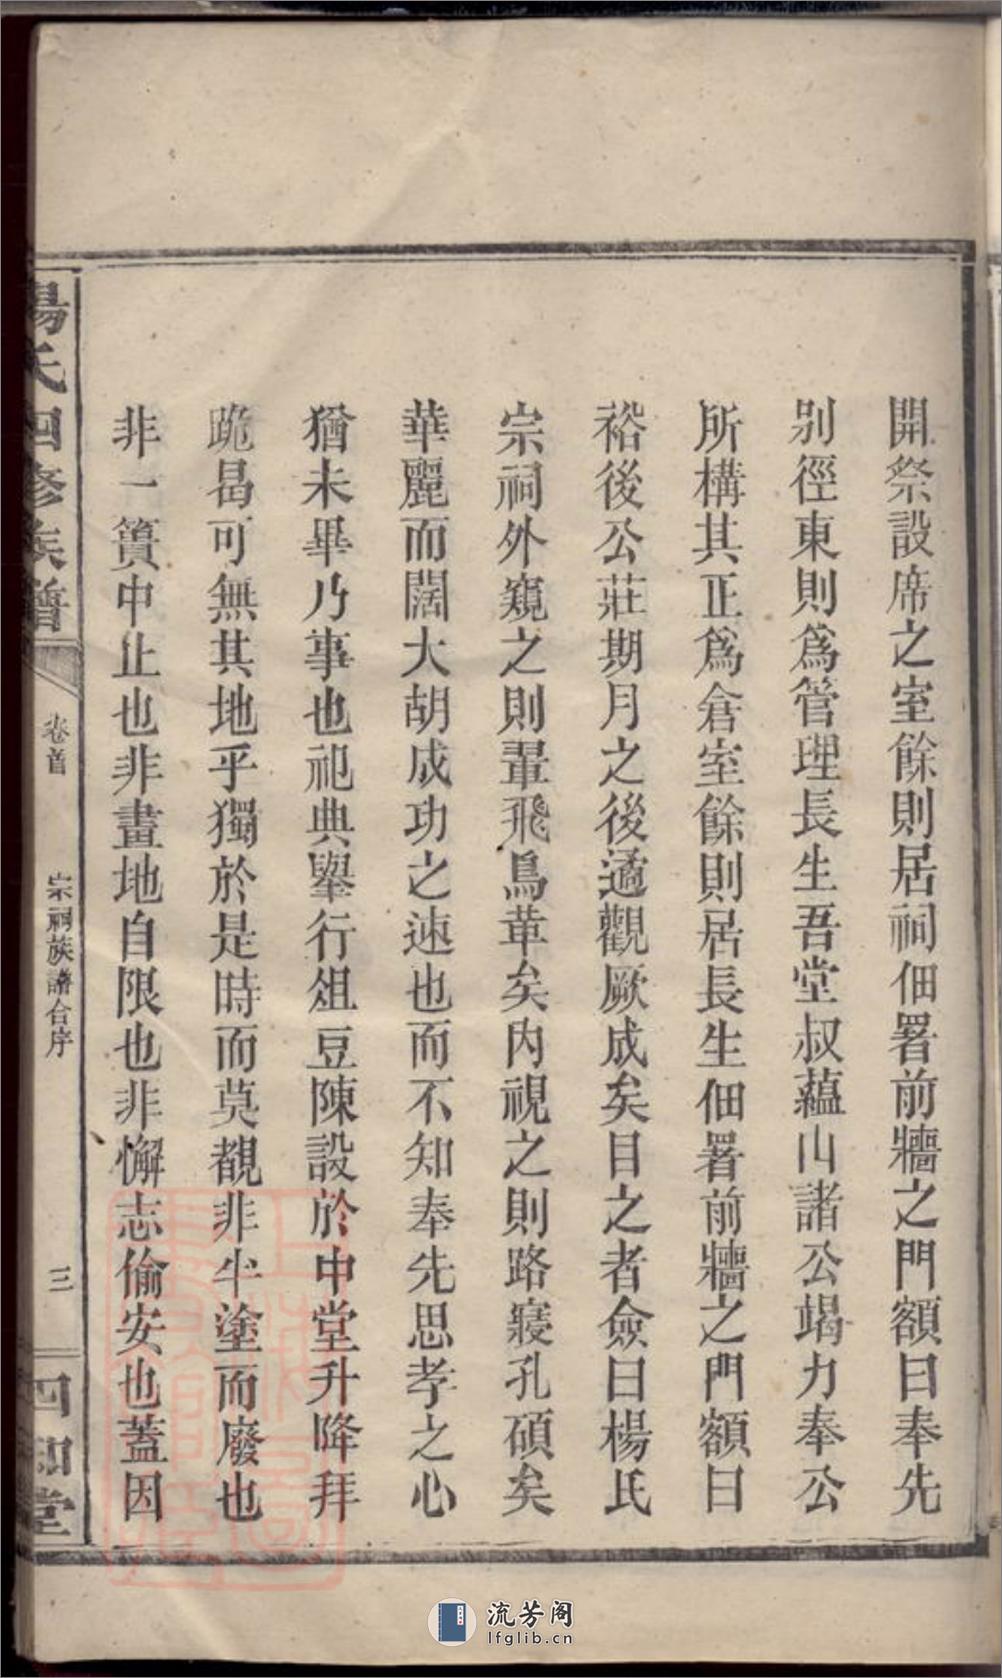 開祭設席之室餘則居祠佃署前牆之門額曰奉先
别徑東則爲管理長生吾堂叔蘊山諸公竭力奉公
所構其正爲倉室餘則居長生佃署前牆之門額曰
裕後公莊期月之後遹觀厥成矣目之者僉曰楊氏
宗祠外窺之則翬飛鳥革矣内視之則路寢孔碩矣
華麗而闊大胡成功之速也而不知奉先思孝之心
猶未畢乃事也祀典舉行俎豆陳設於中堂升降拜
跪曷可無其地乎獨於是時而莫覩非半塗而廢也
非一簣中止也非畫地自限也非懈志偷安也蓋因
楊氏四修族譜
卷首
宗祠族譜合序
三
四知堂
流芳阁
lfglib.cn